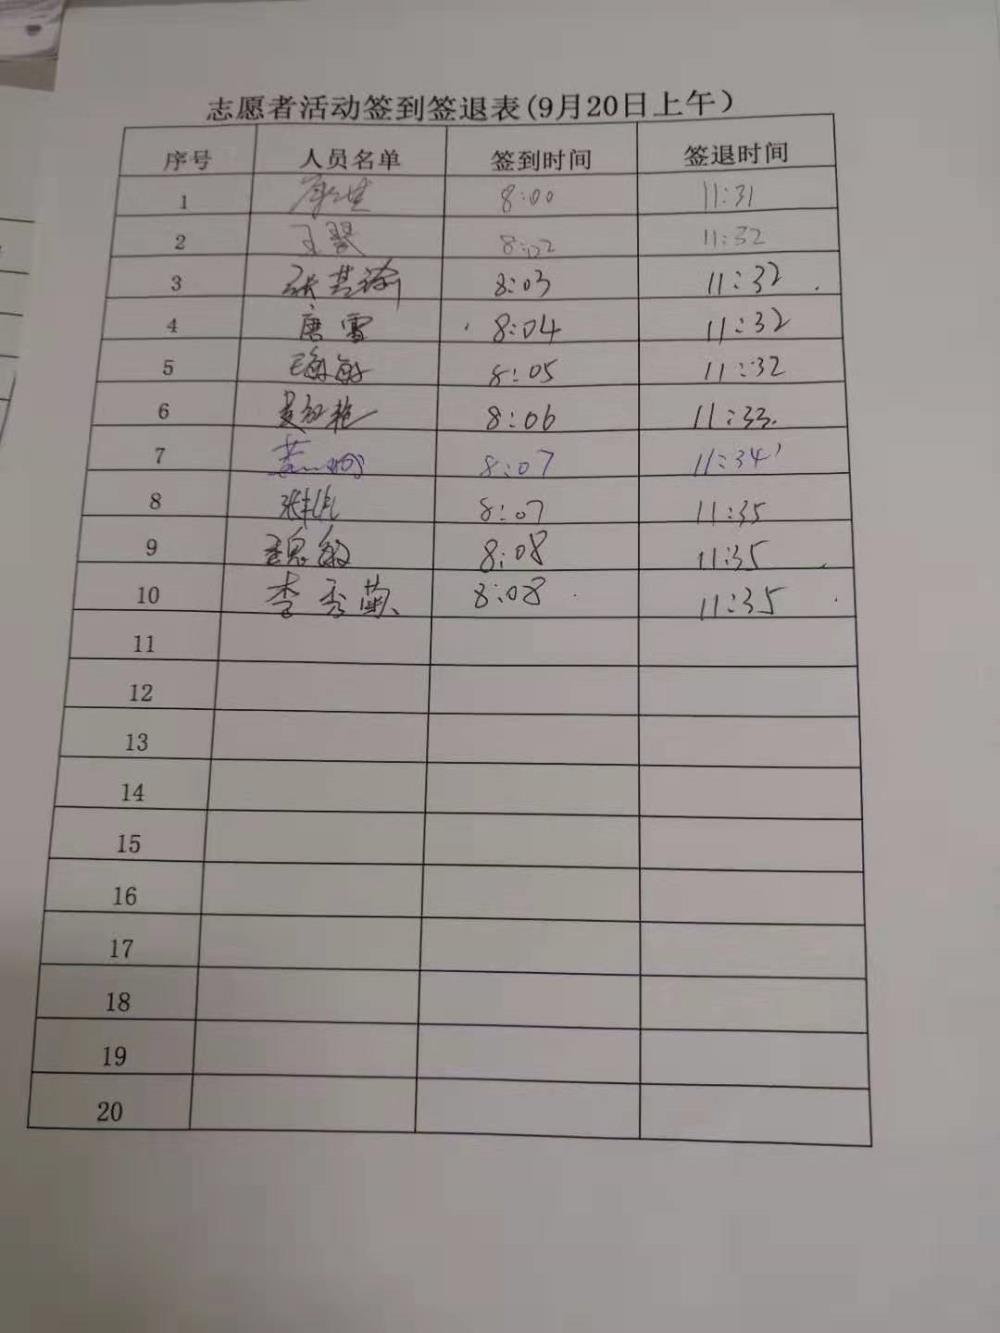 志愿者活动签到签退表(9月20日上午)
序号 人员名单 签到时间 签退时间
1 8:00 11:31
2 王翠 8:02 11:32
3 8:03 11:32
4 唐雪 8:04 11:32
5 8:05 11:32
6 8:06 11:33
7 8:07 11:34
8 8:07 11:35
9 敏 8:08 11:35
10 李秀菊 8:08 11:35
11
12
13
14
15
16
17
18
19
20